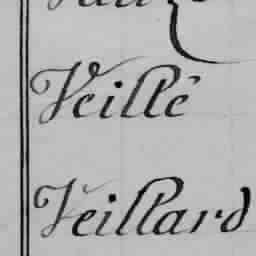 Veillé
Veillard